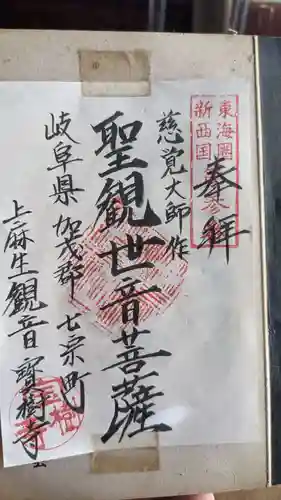 東海圏
新西国
奉拝
慈覚大師作
聖観世音菩薩
岐阜県加茂郡七宗町
上麻生観音寳樹寺